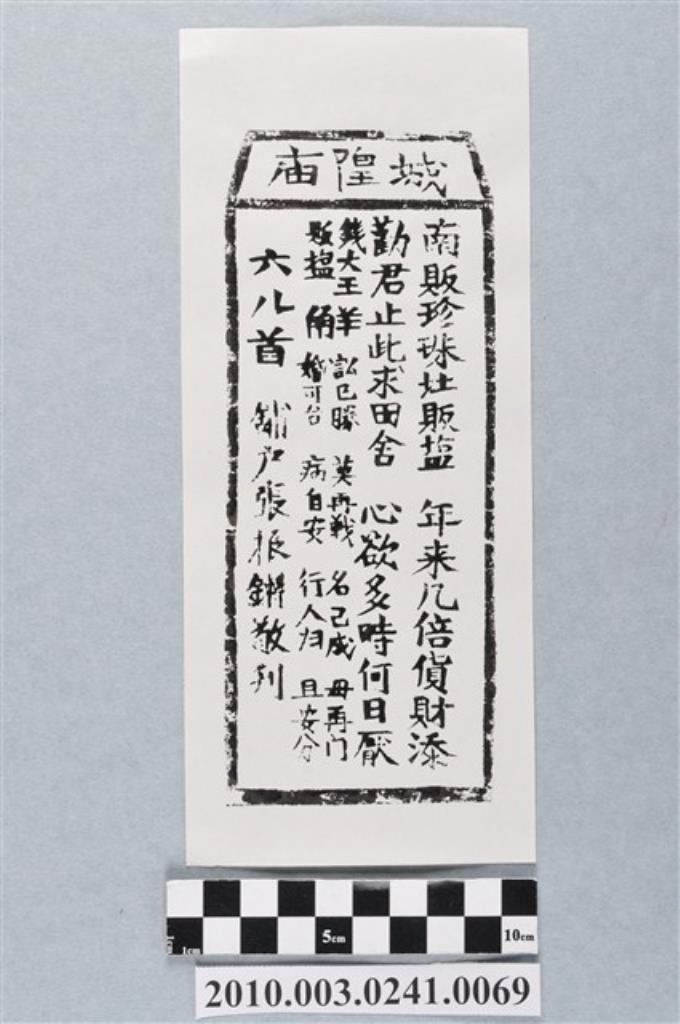 城隍庙
南販珍珠灶販盐 年来几倍貨財添
勸君止此求田舍 心欲多時何日厭
錢大王羊 訟已勝 莫再戰 名已成 毋再门
販塩 角 婚可合 病自安 行人归 且安分
六八首 鋪户張振鏘敬刊
5cm
10cm
1cm
2010.003.0241.0069